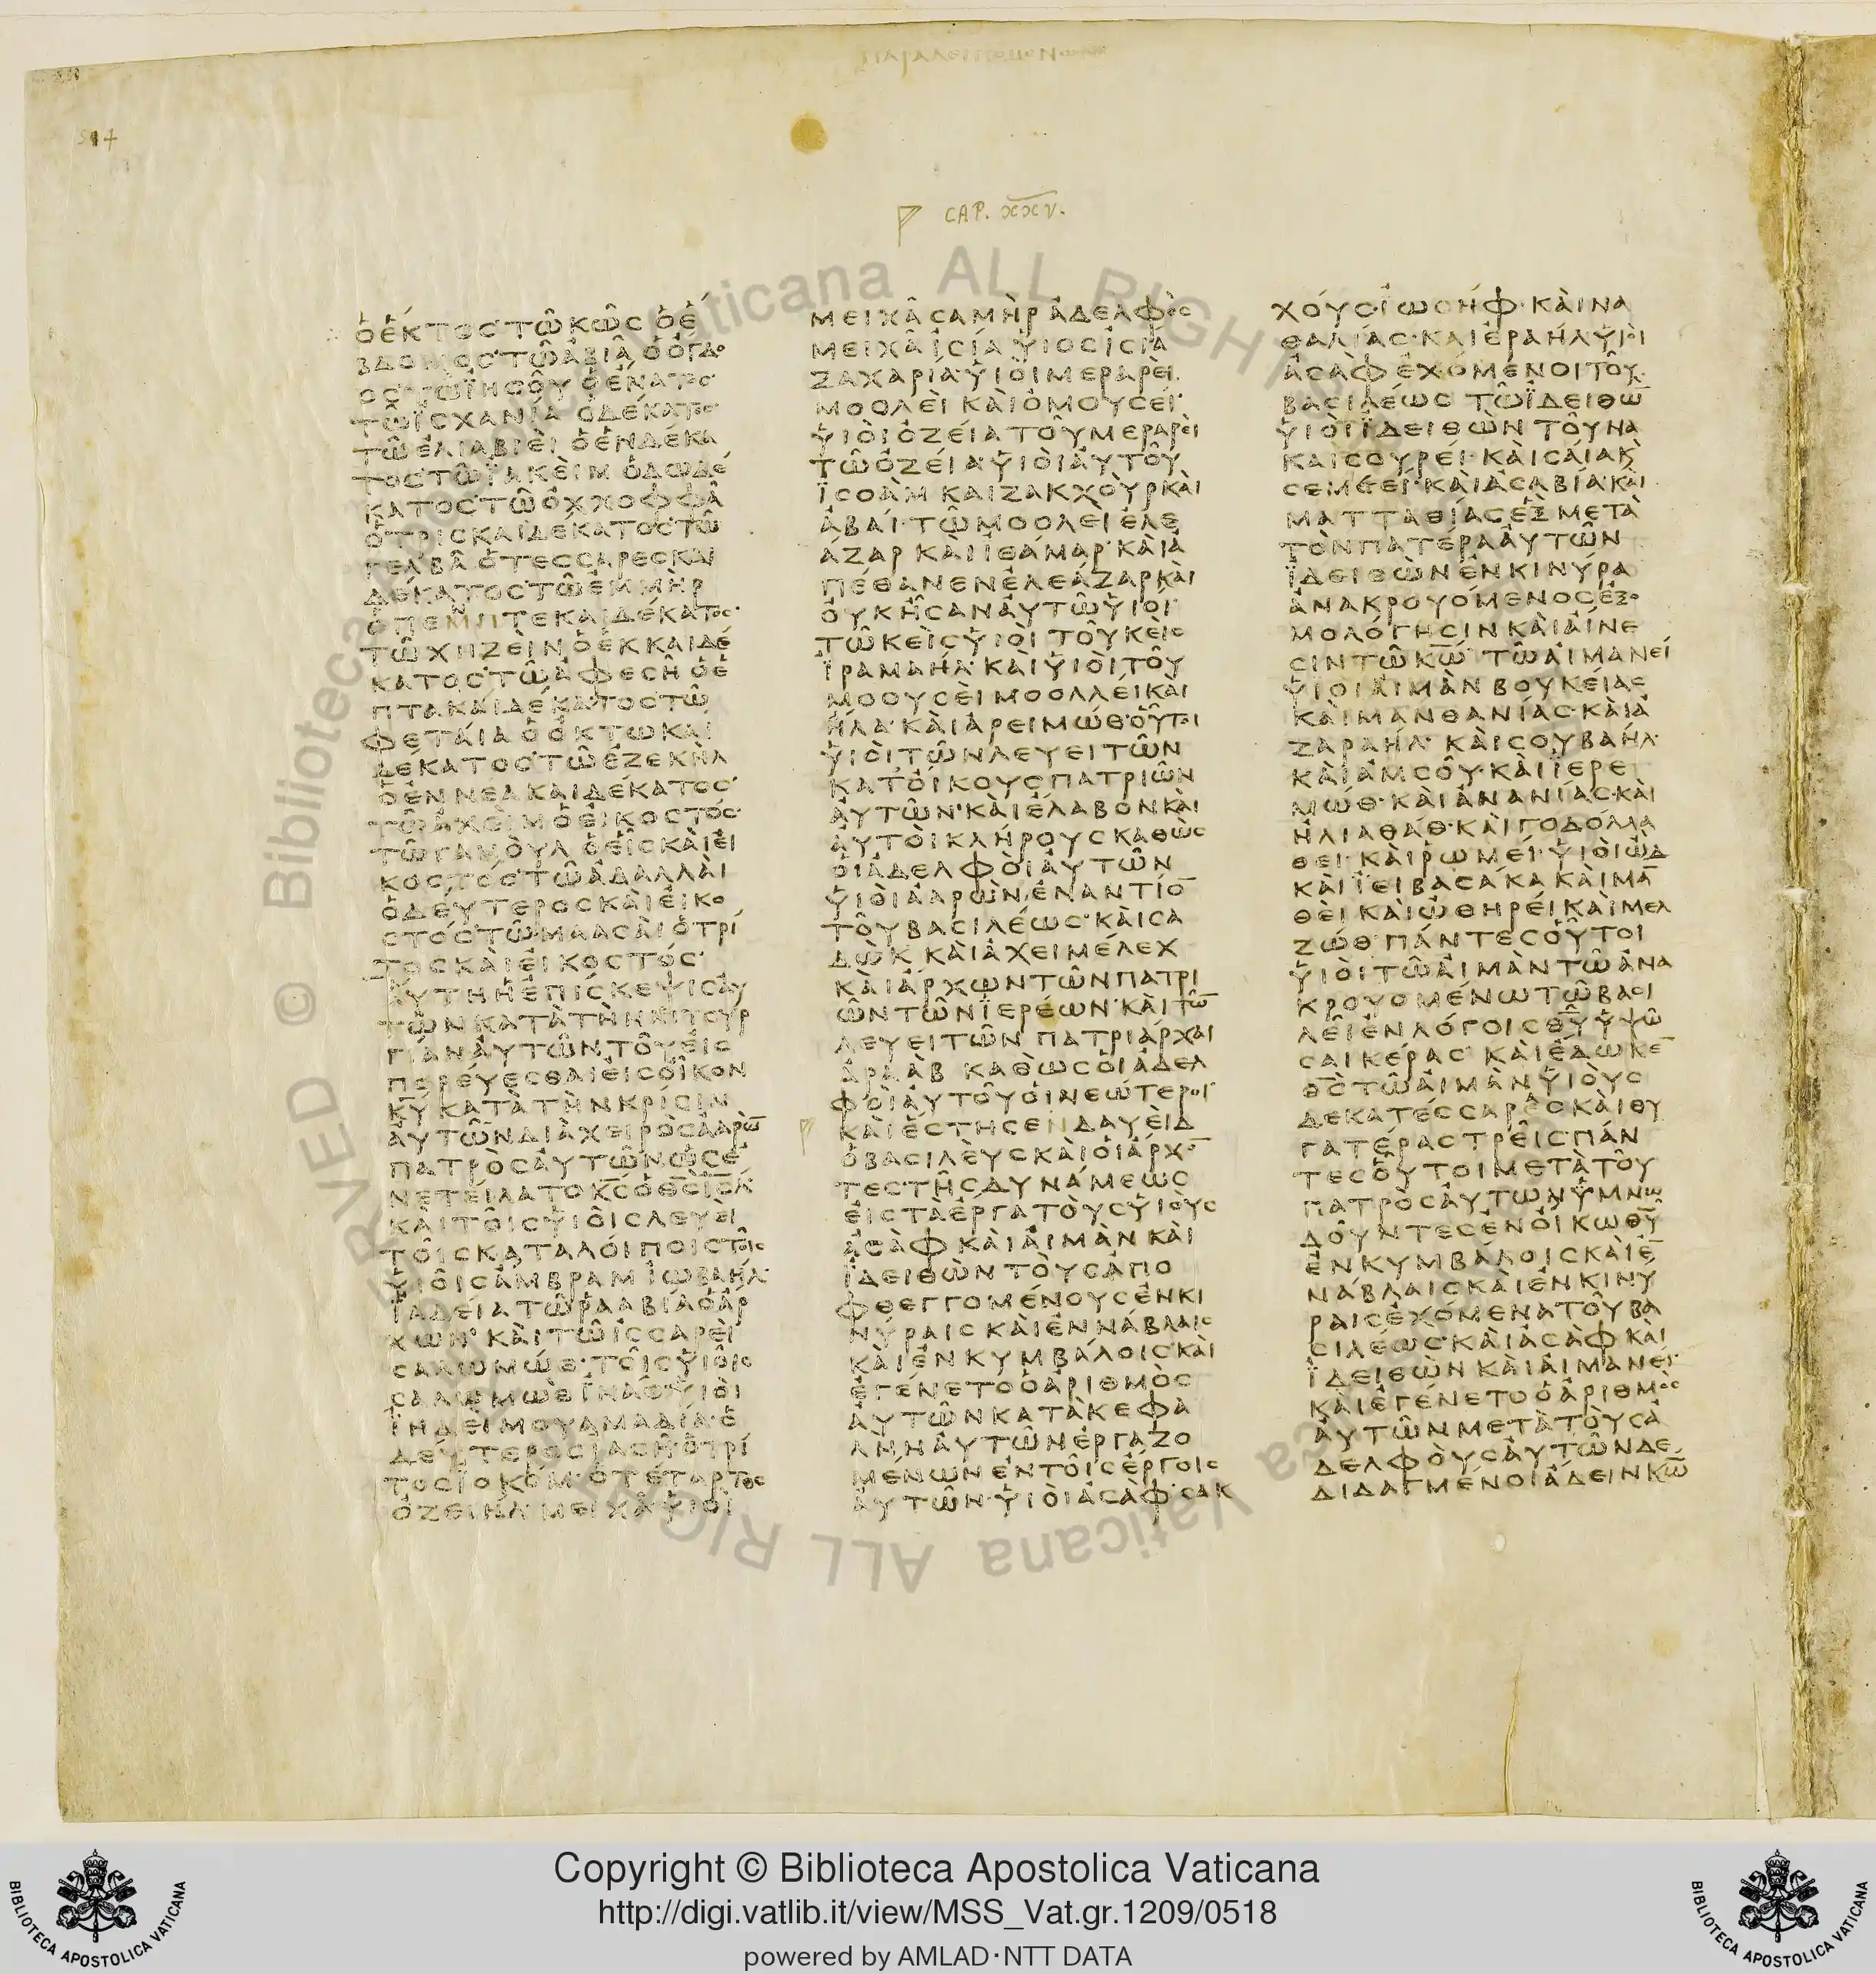 ΠΑΡΑΛΕΙΠΟΜΕΝΩΝ
514
CAP. XXV.
ὁἕκτοςτῶκῶςὁἕ
βδομοςτῶἀβιᾶὁόγδο
οςτῶἰησοῦὁἔνατος
τῶϊσχανίαὁδέκατος
τῶἐλιαβιεὶὁἑνδέκα
τοςτῶϊακεὶμὁδωδέ
κατοςτῶὀχχοφφᾶ
ὁτρισκαιδέκατοςτῶ
γελβᾶὁτεσσαρεσκαι
δέκατοςτῶἐμμὴρ
ὁπεμπτεκαιδέκατος
τῶχηζεὶνὁἑκκαιδέ
κατοςτῶἀφεσὴὁἑ
πτακαιδέκατοςτῶ
φεταίαὁὀκτωκαι
δέκατοςτῶἐζεκὴλ
ὁἐννεακαιδέκατος
τῶἀχεὶμὁεἰκοστός
τῶγαμοὺλὁεἷςκαὶεἰ
κοστόςτῶἀδαλλαὶ
ὁδεύτεροςκαὶεἰκο
στόςτῶμαασαὶὁτρί
τοςκαὶεἰκοστός
αὕτηἡἐπίσκεψιςαὐ
τῶνκατὰτὴνλιτουρ
γίαναὐτῶντοῦεἰς
πορεύεσθαιεἰςοἶκον
κ̅υ̅κατὰτὴνκρίσιν
αὐτῶνδιὰχειρὸςἀαρὼ̅
πατρὸςαὐτῶνὡςἐ
νετείλατοκ̅ς̅ὁθ̅ς̅ι̅η̅λ̅
καὶτοῖςυἱοῖςλευεὶ
τοῖςκαταλοίποιςτοῖς
υἱοῖςἀμβραμἰωβαήλ
ϊαδείατῶῥααβίαὁἄρ
χων·καὶτῶἰσσαρεὶ
σαλωμώθ·τοῖςυἱοῖς
σαλωμὼθἰνάθυἱοὶ
ϊηδείμουἀμαδία·ὁ
δεύτεροςϊασὴὁτρί
τοςϊοκόμ·ὁτέταρτος
ὀζειήλ·μειχᾶυἱοὶ
μειχᾶσαμὴρἀδελφὸς
μειχᾶἰσίαυἱοςἰσία
ζαχαρία·υἱοὶμεραρεί
μοολεὶκαὶὁμουσεί
υἱοὶὀζείατοῦμεραρεὶ
τῶὀζείαυἱοὶαὐτοῦ
ϊσοὰμκαιζακχοὺρκαὶ
ἀβαί·τῶμοολεὶἐλε
άζαρκαὶἰθάμαρ·καὶἀ
πέθανενἐλεάζαρκαὶ
οὐκῆσαναὐτῶυἱοί
τῶκεὶςυἱοὶτοῦκεὶς
ϊραμαήλ·καιυἱοὶτοῦ
μοουσεὶμοολλείκαὶ
ἠλα·καὶἀρειμώθ·οὗτοι
υἱοὶτῶνλευειτῶν
κατοίκουςπατριῶν
αὐτῶν·καὶἔλαβονκαὶ
αὐτοὶκλήρουςκαθὼς
οἱἀδελφοὶαὐτῶν
υἱοὶἀαρὼνἐναντίο̅
τοῦβασιλέως·καὶσα
δὼκκαὶἀχειμέλεχ
καὶἀρχωντῶνπατρι
ῶντῶνϊερέων·καὶτῶ̅
λευειτῶνπατριάρχαι
ἀραὰβκαθὼςοἱἀδελ
φοὶαὐτοῦοἱνεώτεροι
καὶἔστησενδαυεὶδ
ὁβασιλεὺςκαὶοἱἄρχο̅
τεςτῆςδυνάμεως
εἰςτὰἔργατοὺςυἱοὺς
ἀσὰφκαὶαἱμὰνκαὶ
ϊδειθὼντοὺςἀπο
φθεγγομένουςἐνκι
νύραιςκαὶἐννάβλαις
καὶἐνκυμβάλοις·καὶ
ἐγένετοὁἀριθμὸς
αὐτῶνκατὰκεφα
λὴναὐτῶνἐργαζο
μένωνἐντοῖςἔργοις
αὐτῶν·υἱοὶἀσάφ·σακ
χούς·ἰωσήφ·καὶνα
θαλίας·καιἐραήλυἱοὶ
ἀσὰφἐχόμενοιτοῦ
βασιλέωςτῶϊδειθω̅
υἱοὶϊδειθὼντοῦνα
καὶσουρεί·καὶσαίακὰ
σεμεεί·καὶἀσαβίακαὶ
ματταθίαςἓξμετὰ
τὸνπατέρααὐτῶν
ϊδειθὼνἐνκινύρα
ἀνακρουόμενοςἐξο
μολόγησινκαὶαἴνε
σιντῶκ̅ω̅τῶαἱμανεί
υἱοιαἱμὰνβουκείας
καὶμανθανίας·καὶἀ
ζαραήλ·καὶσουβαήλ
καὶἀμσοῦ·καὶϊερε
μώθ·καὶἀνανίας·καὶ
ἡλιαθάθ·καὶγοδολλα
θεικαὶῥωμεί·υἱοὶὠδ
καὶϊειβασάκακαὶμα̅
θεὶκαὶὠθηρείκαὶμελ
ζώθ·πάντεςοὗτοι
υἱοὶτῶαἱμὰντῶἀνα
κρουομένωτῶβασι
λεῖἐνλόγοιςθ̅υ̅ὑψῶ
σαικέρας·καὶἔδωκε̅
θ̅ς̅τῶαἱμὰνυἱοὺς
δεκατέσσαρεςκαὶθυ
γατέραςτρεῖςπάν
τεςοὗτοιμετὰτοῦ
πατρὸςαὐτωνὑμνω
δοῦντεςἐνοἴκωθ̅υ̅
ἐνκυμβάλοιςκαὶἐ
νάβλαιςκαὶἐνκινύ
ραιςἐχόμενατοῦβα
σιλέως·καὶἀσὰφκαὶ
ϊδειθὼνκαὶαἱμανεί
καὶἐγένετοὁἀριθμὸς
αὐτῶνμετὰτοὺςἀ
δελφοὺςαὐτῶνδε
διδαγμένοιἄδεινκ̅ω̅
Copyright © Biblioteca Apostolica Vaticana
http://digi.vatlib.it/view/MSS_Vat.gr.1209/0518
powered by AMLAD·NTT DATA